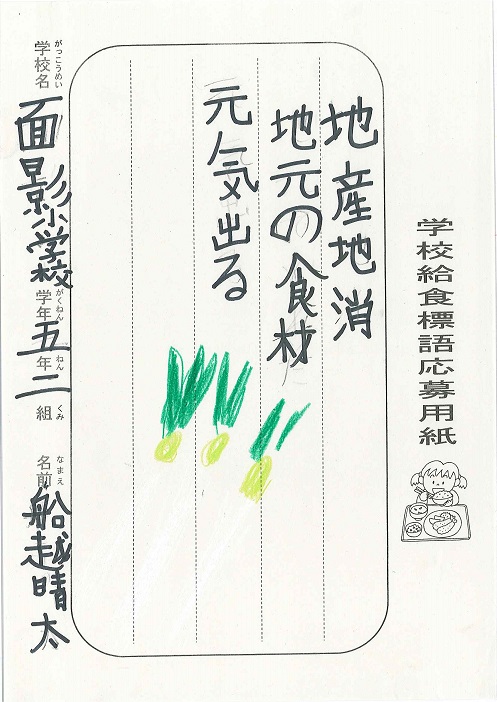 学校給食標語応募用紙
地産地消
地元の食材
元気出る
学校名 がっこうめい 面影小学校 学年 がくねん 五年 ねん 二組 くみ 名前 なまえ 船越晴太